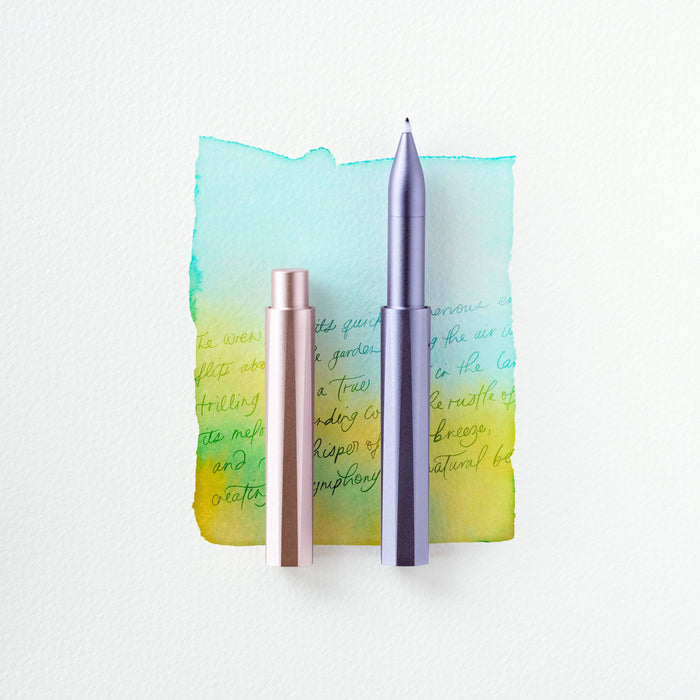 The wren its quick nervous en
flits abo e garden ng the air a
trilling a true in the lan
its melo nding co he rustle of
and hisper of breeze,
creating symphony natural be